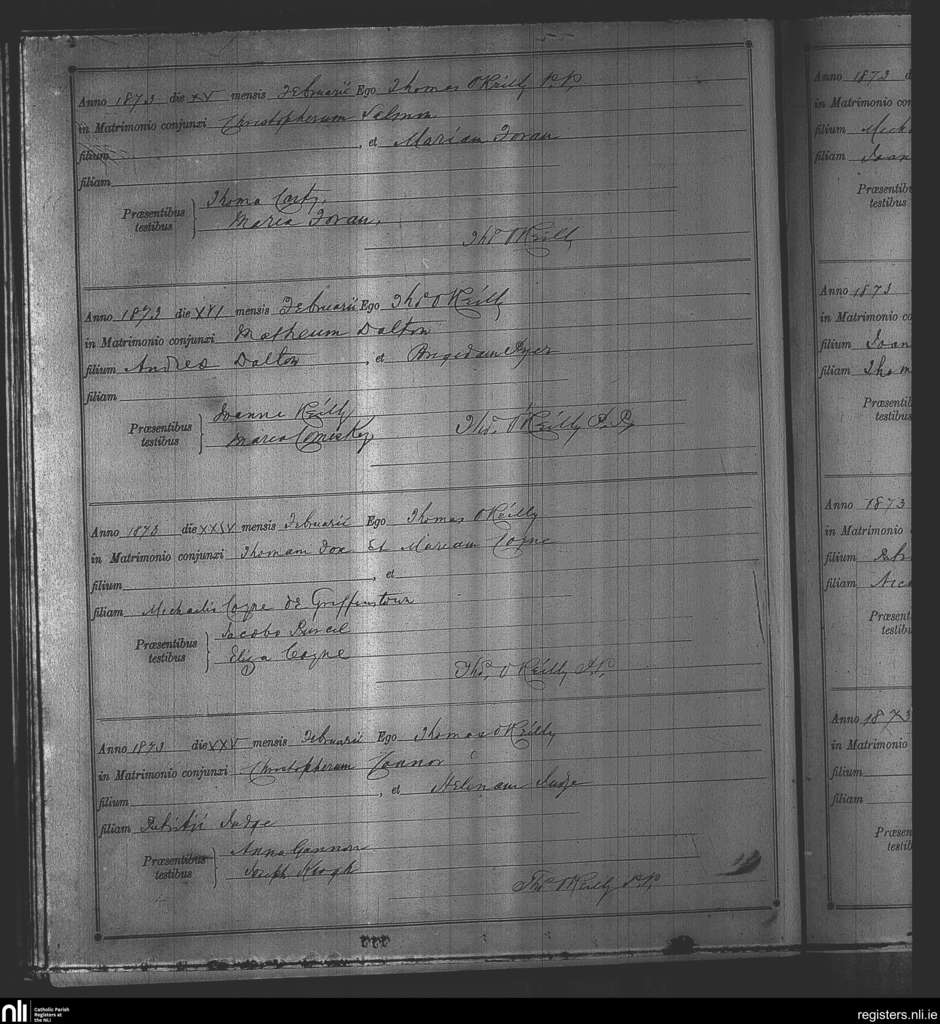 Anno 1873 die XV mensis Februarii Ego Thomas O'Reilly P.P.
in Matrimonio conjunxi Christopherum Salmon
filium , et Mariam Foran
filiam
Præsentibus testibus } Thoma Carty,
Maria Foran,
Thos O'Reilly
Anno 1873 die XVI mensis Februarii Ego Thos O'Reilly
in Matrimonio conjunxi Matheum Dalton
filium Andreo Dalton , et Brigidam Dyer
filiam
Præsentibus testibus } Joanne Reilly
Maria Comiskey
Thos. O'Reilly P.P.
Anno 1873 die XXIV mensis Februarii Ego Thomas O'Reilly
in Matrimonio conjunxi Thomam Fox Et Mariam Coyne
filium , et
filiam Michaelis Coyne de Griffinstown
Præsentibus testibus } Jacobo Purcel
Eliza Coyne
Thos. O'Reilly P.P.
Anno 1873 die XXV mensis Februarii Ego Thomas O'Reilly
in Matrimonio conjunxi Christopherum Connor
filium , et Helenam Judge
filiam Patritii Judge
Præsentibus testibus } Anna Gannon
Joseph Keogh
Thos O'Reilly P.P.
Anno 1873
in Matrimonio
filium
filiam
Præsentib
testibu
Anno 1873
in Matrimonio
filium Joan
filiam Thom
Præsentib
testibus
Anno 1873
in Matrimonio
filium
filiam
Præsent
testibu
Anno 1873
in Matrimonio
filium
filiam
Præsen
testib
nli Catholic Parish Registers at the NLI
registers.nli.ie